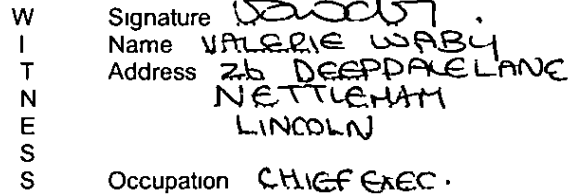 W Signature
I Name VALERIE WABY
T Address 26 DEEPDALE LANE
N NETTLEHAM
E LINCOLN
S
S Occupation CHIEF EXEC.